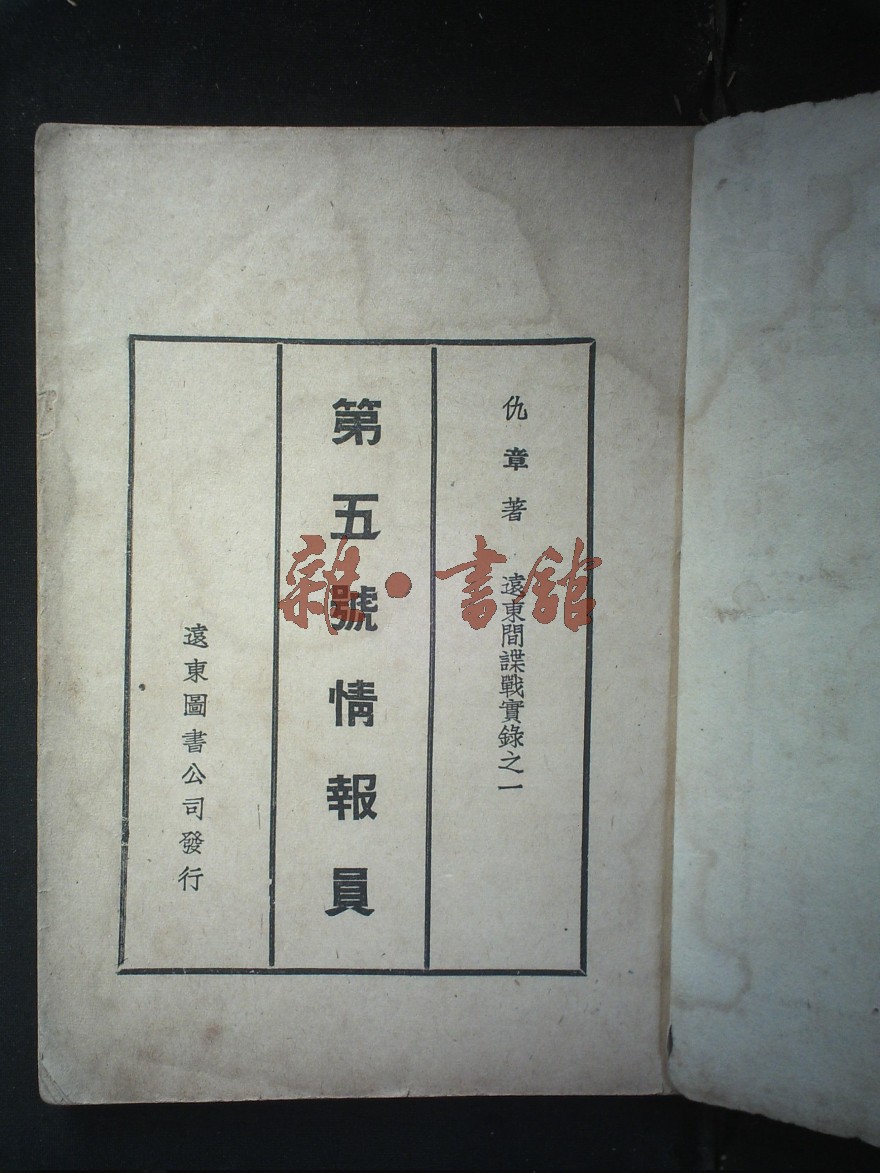 仇章著 遠東間諜戰實錄之一
第五號情報員
遠東圖書公司發行
雜·書館